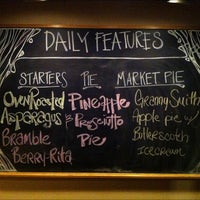 DAILY FEATURES
STARTERS
Oven Roasted
Asparagus
Bramble
Berry-Rita
PIE
Pineapple
& Prosciutto
Pie
MARKET PIE
Granny Smith
Apple pie w/
Butterscotch
Icecream